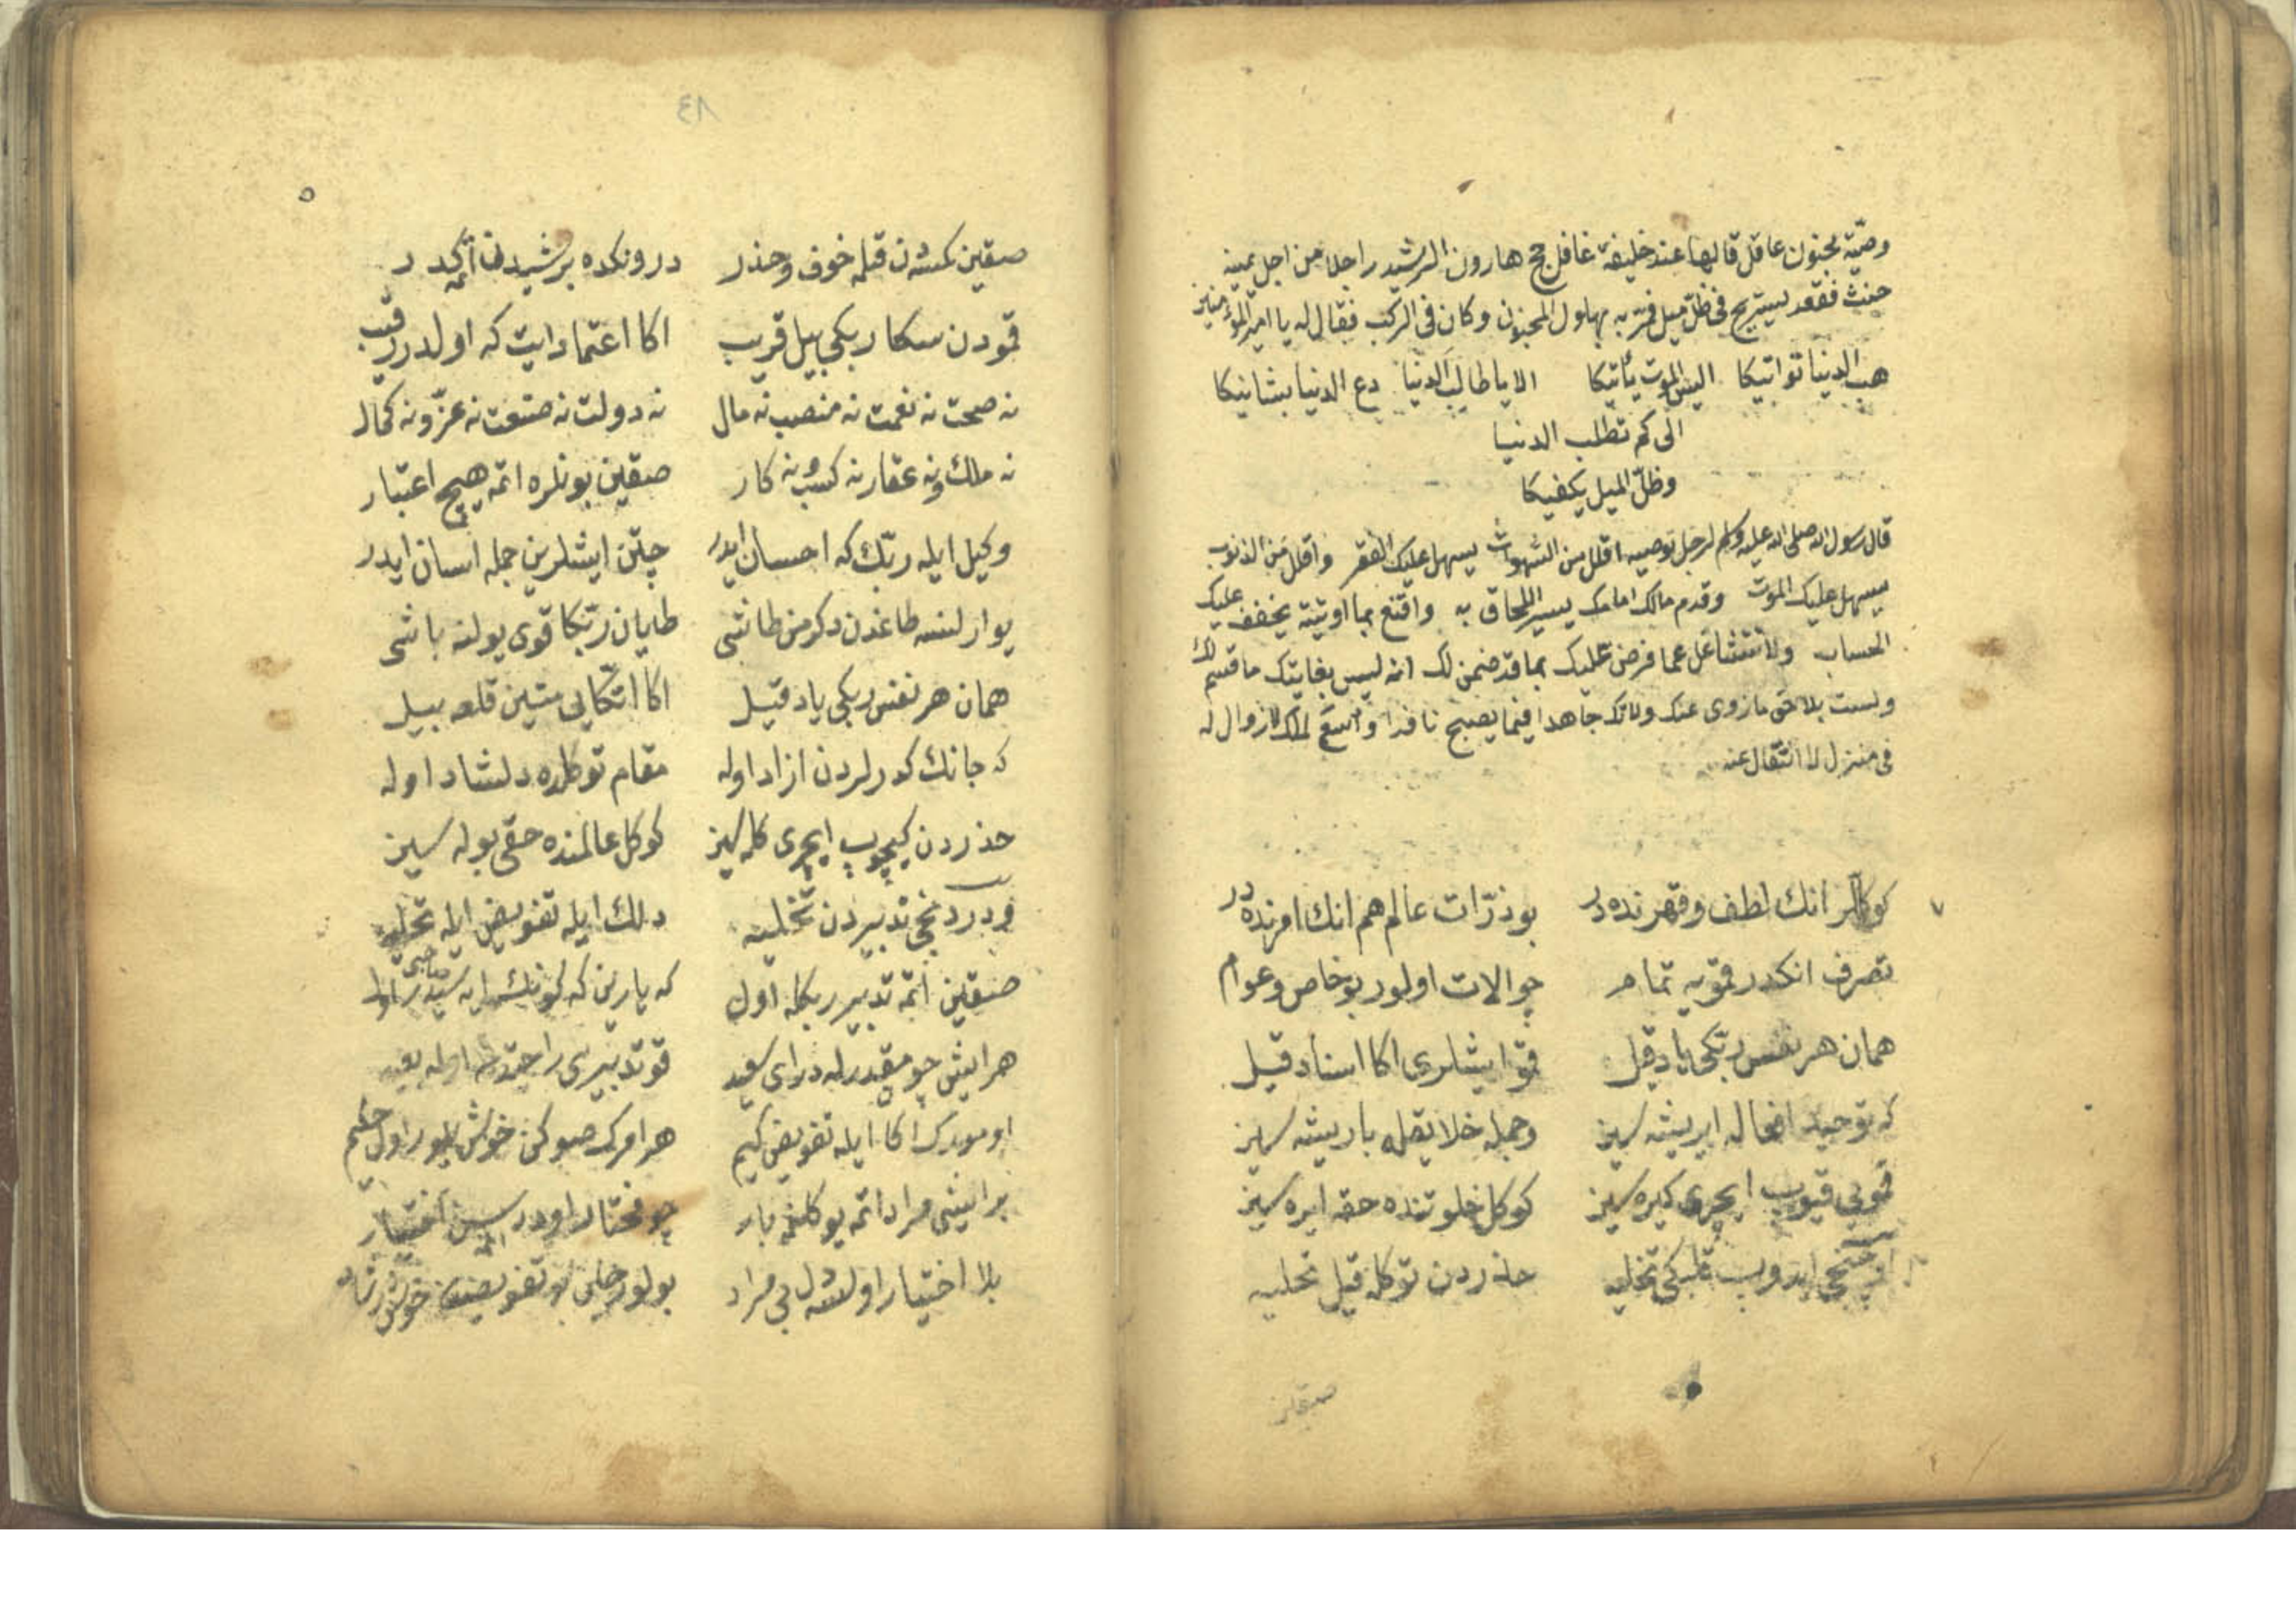 وصية مجنون عاقل قالها عند خليفة غافل حج هارون الرشيد راجلا من اجل يمينه
حنث فقعد ليستريح في ظل ميل فمر به بهلول المجنون وكان في الركب فقال له يا امير المؤمنين
هب الدنيا تواتيكا اليس الموت يأتيكا الا يا طالب الدنيا دع الدنيا لشانيكا
الى كم تطلب الدنيا
وظل الميل يكفيكا
قال رسول الله صلى الله عليه وسلم لرجل يوصيه اقلل من الشهوات يسهل عليك الفقر واقلل من الذنوب
يسهل عليك الموت وقدم مالك امامك يسرك اللحاق به واقنع بما اوتيته يخفف عليك
الحساب ولا تتشاغل عما فرض عليك بما قد ضمن لك انه ليس بفايتك ما قسم لك
ولست بلاحق ما زوى عنك ولا تك جاهدا فيما يصبح نافدا واسع لملك لا زوال له
في منزل لا انتقال عنه
كوكللر انك لطف وقهرنده در بو ذرات عالم هم انك امرنده در
تصرف انكدر قمويه تمام چو الات اولور بو خاص وعوام
همان هر نفس ربكى ياد قيل قمو ايشلرى اكا اسناد قيل
كه توحيد افعاله ايريشه سين وجمله خلايقله باريشه سين
قمويى قيوب ايچرى كيره سين كوكل خلوتنده حقه ايره سين
ايدوب قلبكى تخليه حذردن توكله قيل تحليه
صقين
٨٤
صقين كمسه‌دن قلمه خوف وحذر درونكده بر شيدن اتمه كدر
قمودن سكا ربكى بيل قريب اكا اعتماد ايت كه اولدر رقيب
نه صحت نه نعمت نه منصب نه مال نه دولت نه صنعت نه عز ونه كمال
نه ملك ونه عقار نه كسب ونه كار صقين بونلره اتمه هيچ اعتبار
وكيل ايله ربك كه احسان ايدر چتن ايشلرين جمله اسان ايدر
يوارلنسه طاغدن دكرمن طاشى طايان ربكا قوى يولنه باشى
همان هر نفس ربكى ياد قيل اكا اتكايى متين قلعه بيل
كه جانك كدرلردن ازاد اوله مقام توكلده دلشاد اوله
حذردن كيچوب ايچرى كله سين كوكل عالمنده حقى بوله سين
تدبيردن تخليه دلك ايله تفويض ايله تحليه
صقين اتمه تدبير ربكله اول كه يارين كه كونك
هر ايش چو مقدرله در اى سعيد قو تدبيرى
امورك اكا ايله تفويض كيم هوا مرك صوكن خوش بلور اول حكيم
بر ايشى مراد اتمه يوكلنمه بار چو مختار اودر سن اتمه اختيار
بلا اختيار اولسه دل بى مراد بولور